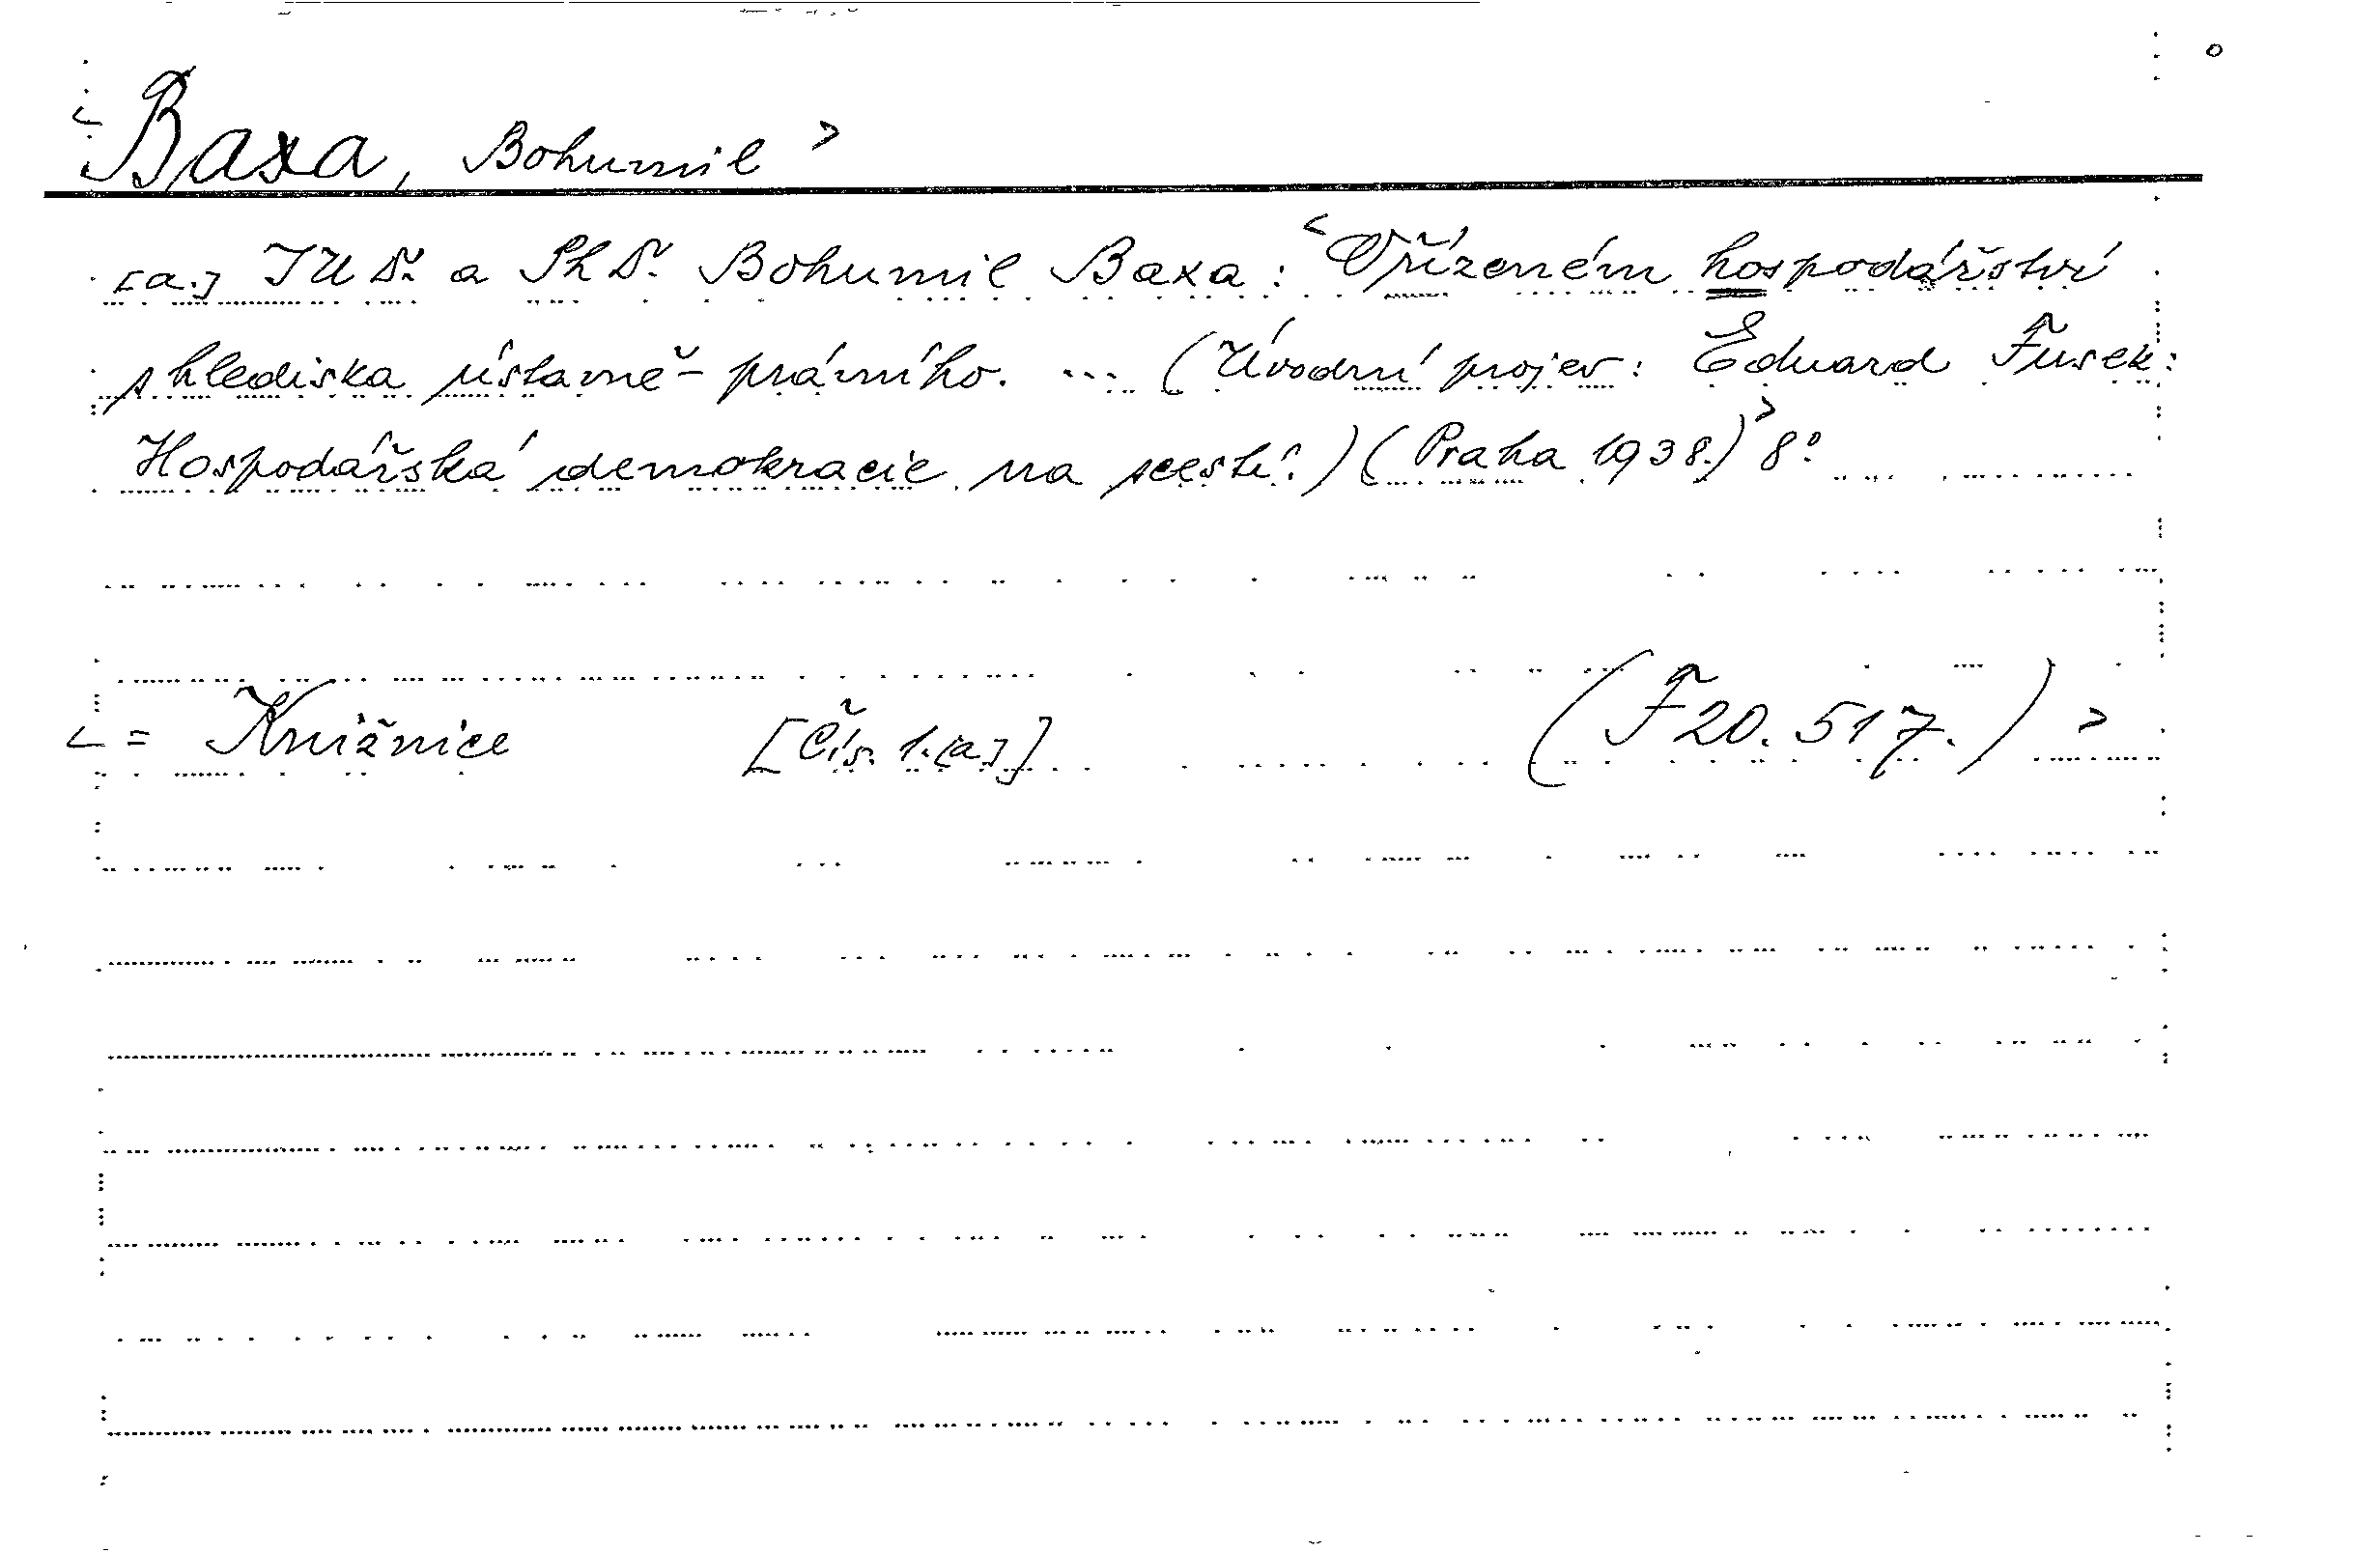 < Baxa, Bohumil >
[a.] JUDr. a PhDr. Bohumil Baxa: < O řízeném hospodářství
s hlediska ústavně-právního. ... (Úvodní projev: Eduard Fusek:
Hospodářská demokracie na scestí.) (Praha 1938.) > 8°
< = Knižnice [Čís. 1.[a.]] (F 20.517.) >